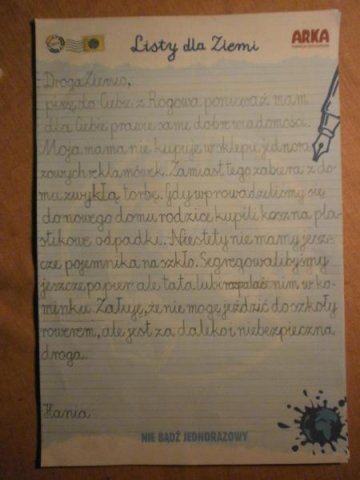 Listy dla Ziemi
ARKA
Droga Ziemio,
piszę do Ciebie z Rogowa ponieważ mam
dla Ciebie prawie same dobre wiadomości.
Moja mama nie kupuje w sklepie jednora
zowych reklamówek. Zamiast tego zabiera z do-
mu zwykłą torbę. Gdy wprowadziliśmy się
do nowego domu rodzice kupili kosz na pla-
stikowe odpadki. Niestety nie mamy jesz-
cze pojemnika na szkło. Segregowalibyśmy
jeszcze papier ale tata lubi rozpalać nim w ko-
minku. Żałuję, że nie mogę jeździć do szkoły
rowerem, ale jest za daleko i niebezpieczna
droga.
Hania
NIE BĄDŹ JEDNORAZOWY